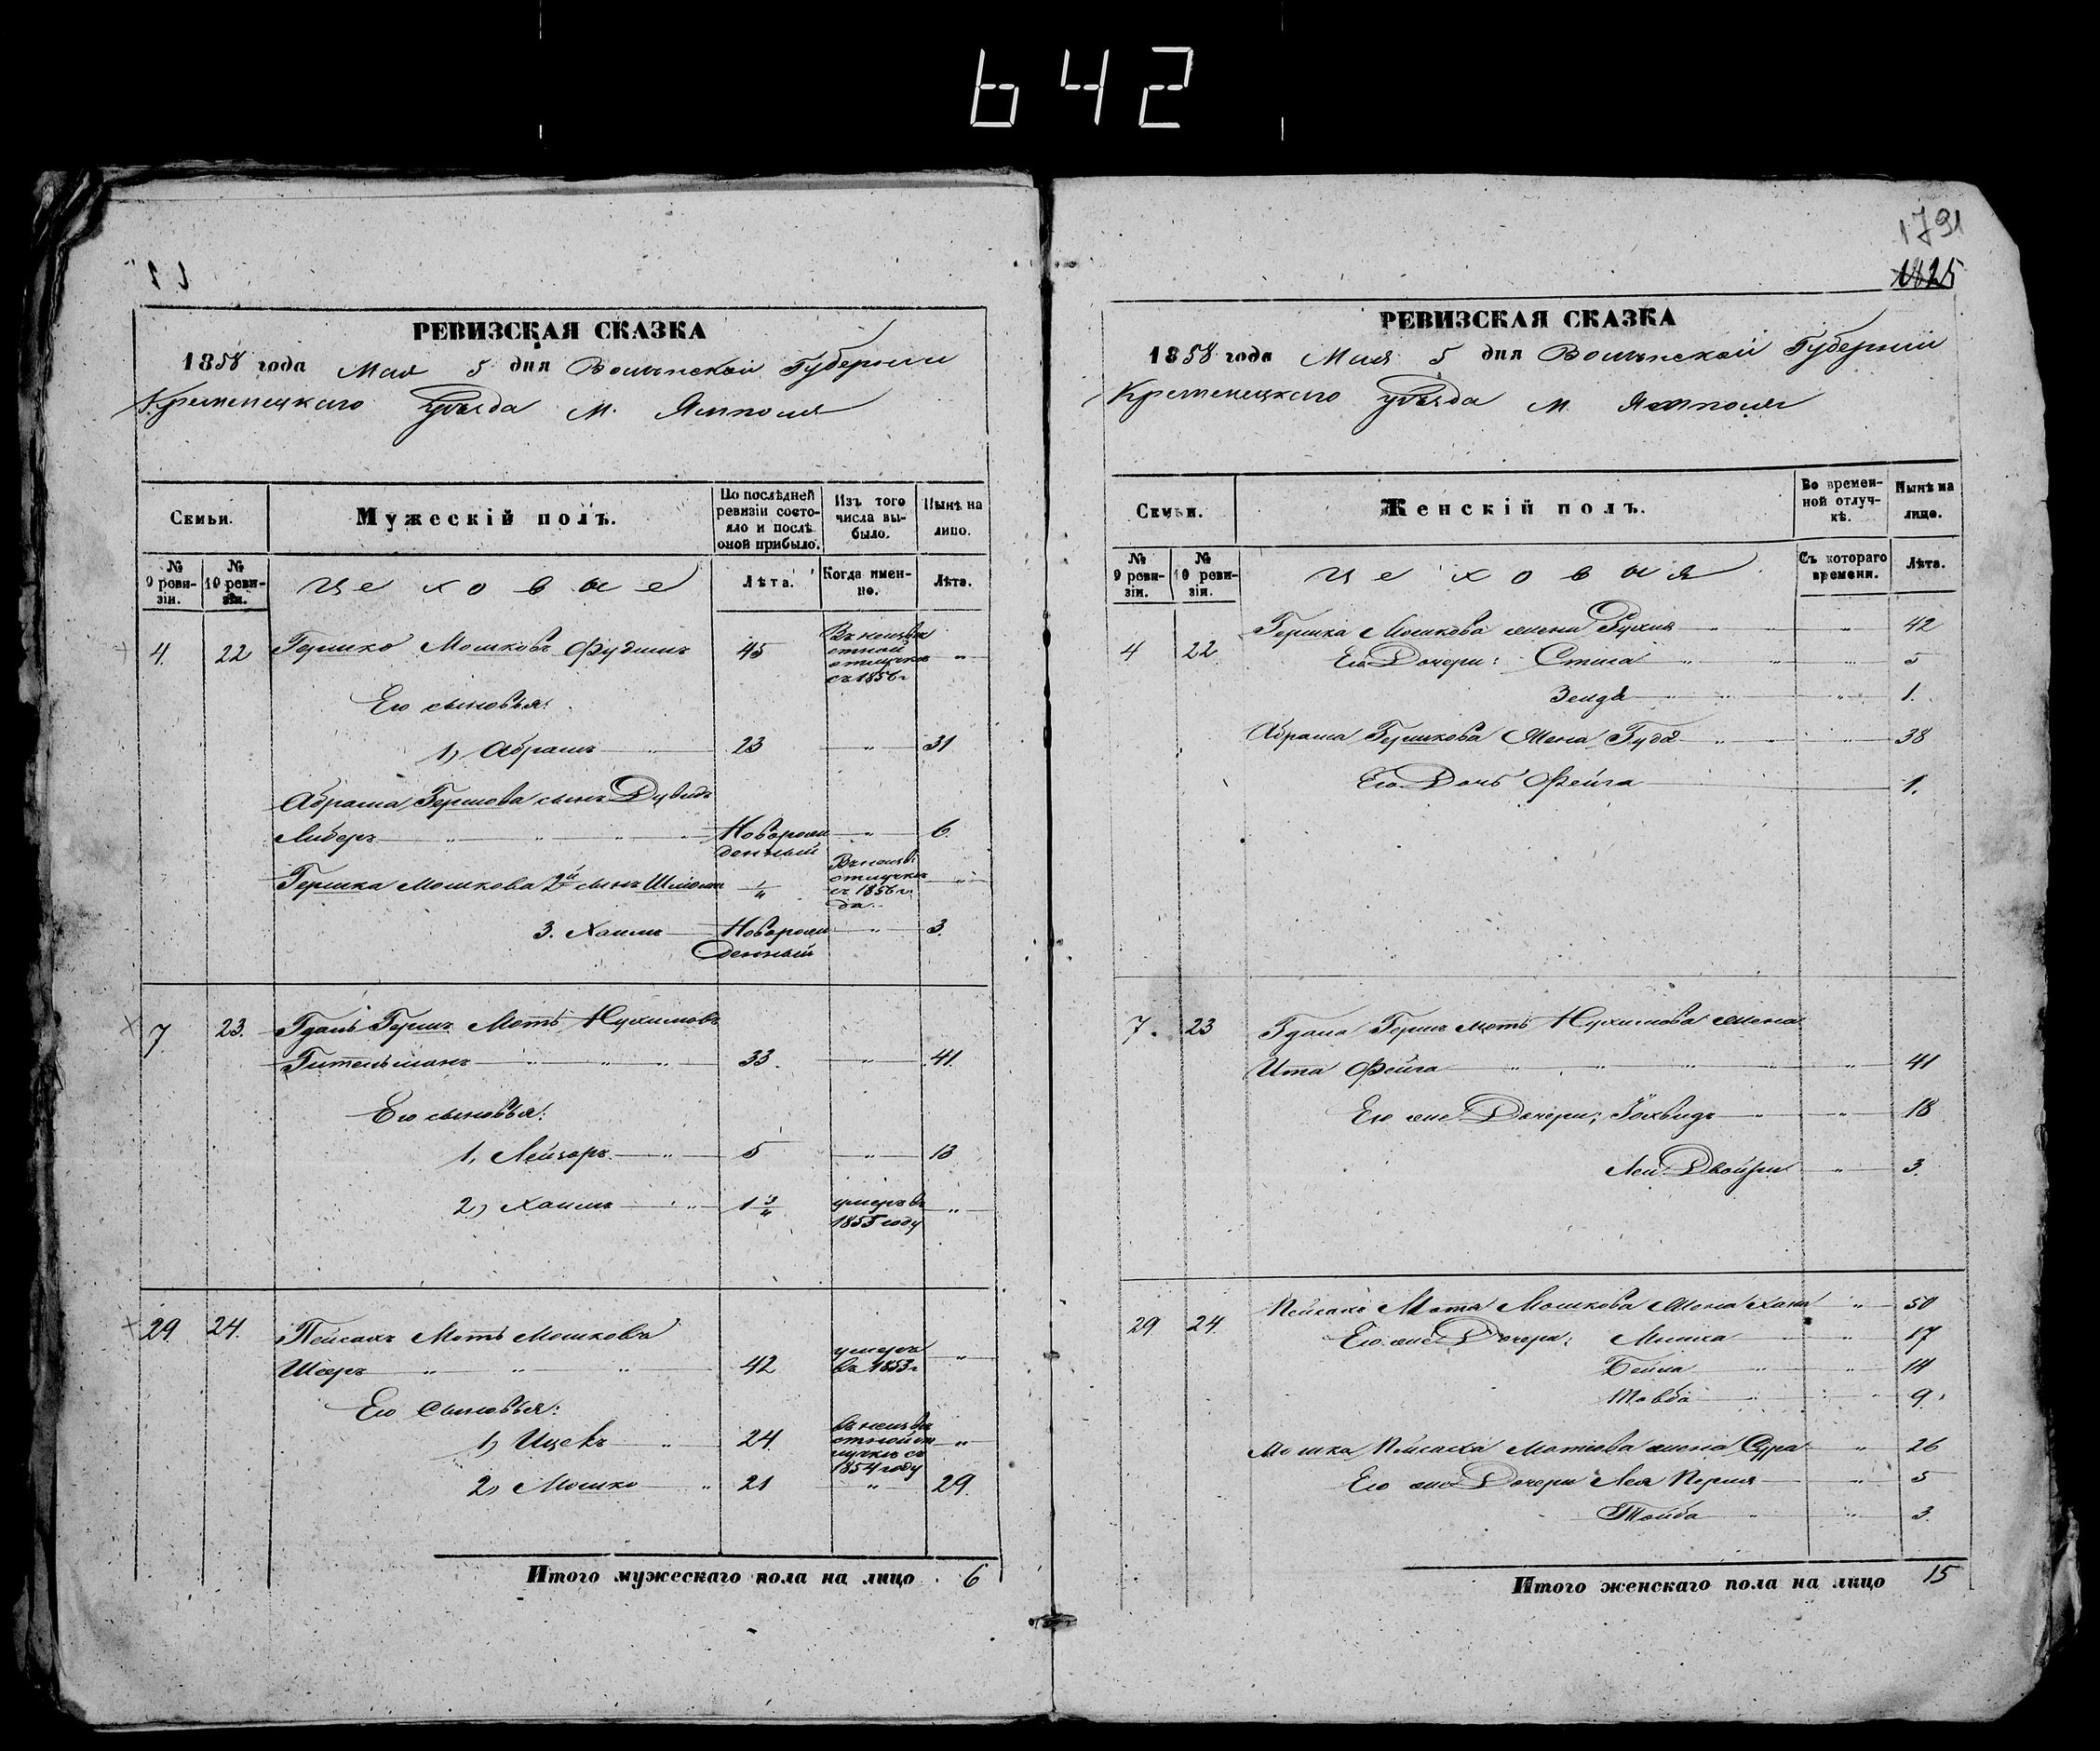 642
РЕВИЗСКАЯ СКАЗКА
1858 года Мая 5 дня Волынской Губернии
Кременецкаго уѣзда м. Ямполя
Семьи.
Мужескій полъ.
По послѣдней ревизіи состояло и послѣ оной прибыло.
Изъ того числа выбыло.
Нынѣ на лицо.
№ 9 ревизіи.
№ 10 ревизіи.
цеховые
Лѣта.
Когда именно.
Лѣта.
4. 22 Гершко Мошковъ Фудимъ 45 Въ неизвѣстной отлучкѣ съ 1856 г „
Его сыновья:
1, Абрамъ „ 23 „ 31
Абрама Гершова сынъ Дувидъ
Либеръ „ „ „ „ Новорожденный „ 6.
Гершка Мошкова 2й сынъ Шлома „ съ 1856 го да „
3. Хаимъ Новорожденный „ 3.
7. 23. Гдаль Гершъ Моть Нухимовъ
Гительманъ „ „ „ 33. „ 41.
Его сыновья:
1, Лейзоръ „ 5 „ 13
2, Хаимъ „ 1 умеръ въ 1855 году „
29. 24. Пейсахъ Моть Мошковъ
Шеръ „ „ „ 42 умеръ въ 1853 г „
Его Сыновья:
1, Ицекъ „ 24. въ неизвѣстной отлучкѣ съ 1854 году „
2, Мошко „ 21 „ 29.
Итого мужескаго пола на лицо 6
1791
1825
РЕВИЗСКАЯ СКАЗКА
1858 года Мая 5 дня Волынской Губерніи
Кременецкаго уѣзда м. Ямполя
Семьи.
Женскій полъ.
Во временной отлучкѣ.
Нынѣ на лицо.
№ 9 ревизіи.
№ 10 ревизіи.
цеховыя
Съ котораго времени.
Лѣта.
4 22 Гершка Мошкова жена Рухля „ „ „ 42
Его Дочери: „ „ „ 5
Зелда „ „ „ 1.
Абрама Гершкова Жена Гуда „ „ „ 38
Его Дочь Фейга 1.
7. 23 Гдаля Гершъ Моть Нухимова жена
Ита Фейга „ „ „ „ „ 41
Его же Дочери: „ „ 18
Лея Двойра „ 3.
29 24. Пейсаха Мотя Мошкова Жена Хана „ 50
Его же Дочери: „ 17
Бейла „ „ 14
Товба „ „ 9.
Мошка Пейсаха Мотева жена Сура „ 26
Его же Дочери Лея Перля „ 5
Тойба „ „ 3.
Итого женскаго пола на лицо 15